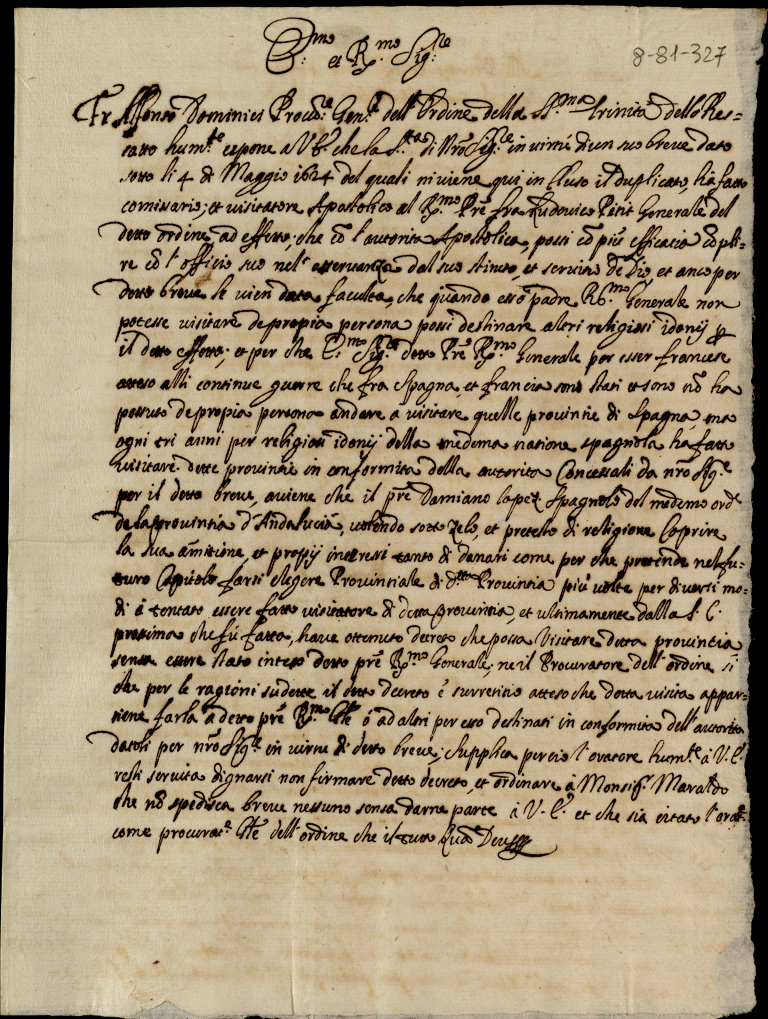 E:mo et R.mo Sig:re
8-81-327
Fr Alfonso Dominici Procu:re Gen.le dell'Ordine della SS.ma Trinità dello Res=
catto hum.te espone a V.E. che la S.tà di Nro Sig.re in virtù di un suo breve dato
sotto li 4 di Maggio 1624 del quali ni viene qui in cluso il duplicato, hà fatto
comissario, et visitatore Apostolico al R.mo Pre fra Ludovico Petit Generale del
detto ordine, ad effetto, che cõ l'autorita Apostolica, possi cõ più efficacia cõpli=
re cõ l'officio suo nell'osservanza dal suo stituto, et servitio de Dio, et anco per
detto breve le vien data faculta, che quando esso padre R.mo Generale non
potesse visitare de propia persona possi destinare altri religiosi idonij p
il detto effetto; et per che E.mo Sig.re detto Pre R.mo Generale per esser francese
atteso alli continue guerre che fra Spagna, et francia sono stati et sono nõ ha
potuto de propia persona andare a visitare quelle provintie di Spagna, ma
ogni tri anni per religiosi idonij della medema natione spagnola ha fatto
visitare dette provintie in conformita della autorita Concessali da nro Sig.re
per il detto breve, aviene che il pre Damiano lopez Spagnolo del medemo ord.e
de la provintia d'Andalucia, volendo sotto zelo, et pretesto di religione Coprire
la sua ambitione, et propij interessi tanto di danari come per che pretende nel fu=
turo Capitolo farsi elegere Provintiale di d.tta Provintia più volte per diversi mo=
di à tentato essere fatto visitatore di detta provintia, et ultimamente dalla S. C.
prossima che fù fatta, have ottenuto decreto che possa Visitare detta provintia
sensa essere stato inteso detto pre R.mo Generale, ne il Procuratore dell'ordine si
che per le ragioni sudette il detto decreto è surrettitio atteso che detta visita appar=
tiene farla à detto pre R.mo Gle ò ad altri per esso destinati in conformita dell'autorita
datoli per nro Sig.re in virtu di detto breve; Supplica percio l'oratore hum.te à V.E.
resti servita dignarsi non firmare detto decreto, et ordinare à Monsig.r Maraldo
che nõ spedisca breve nessuno sensa darne parte à V.E. et che sia citato l'orat.re
come procurat.e Gle dell'ordine che il tutto Quã Deus